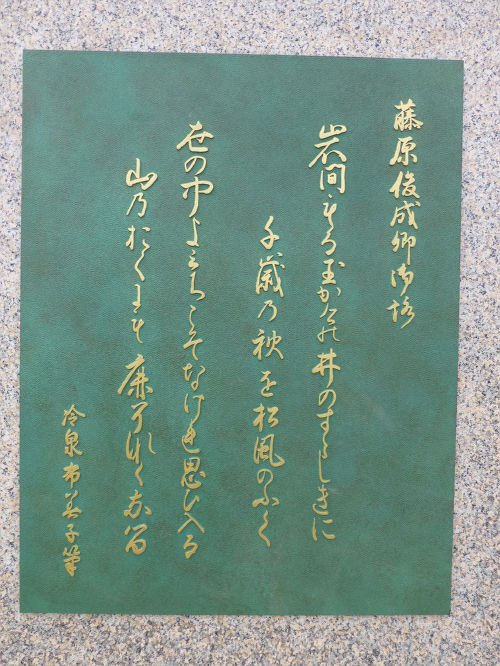 藤原俊成卿御詠
岩間もる玉かげの井のすゞしきに
千歳乃秋を松風のふく
世の中よみちこそなけれ思ひ入る
山乃おくにも鹿ぞ那く奈留
冷泉布美子筆